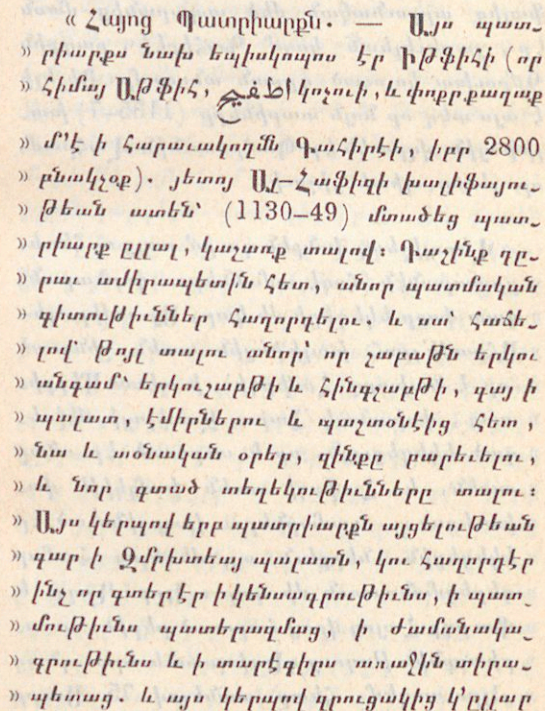 « Հայոց Պատրիարքն. — Այս պատ-
» րիարքս նախ եպիսկոպոս էր Իթֆիհի (որ
» Հիմայ Աթֆիհ, اطفيح կոչուի, և փոքր քաղաք
» մ՚է ի Հարաւակողմն Գահիրէի, իբր 2800
» բնակչօք). յետոյ Ալ-Հաֆիզի խալիֆայու-
» թեան ատեն՝ (1130–49) մտածեց պատ-
» րիարք ըլլալ, կաշառք տալով։ Դաշինք դը-
» րաւ ամիրապետին հետ, անոր պատմական
» գիտութիւններ հաղորդելու. և սա՝ հաճե-
» լով՝ թոյլ տալու անոր որ շաբաթն երկու
» անգամ՝ երկուշաբթի և հինգշաբթի, գայ ի
» պալատ, էմիրներու և պաշտօնէից հետ,
» նա և տօնական օրեր, զինքը բարեւելու,
» և նոր գտած տեղեկութիւնները տալու։
» Այս կերպով երբ պատրիարքն այցելութեան
» գար ի Զմրխտեայ պալատն, կու հաղորդէր
» ինչ որ գտեր էր ի կենսագրութիւնս, ի պատ-
» մութիւնս պատերազմաց, ի ժամանակա-
» գրութիւնս և ի տարէգիրս առաջին տիրա-
» պետաց. և այս կերպով զրուցակից կ՚ըլլար